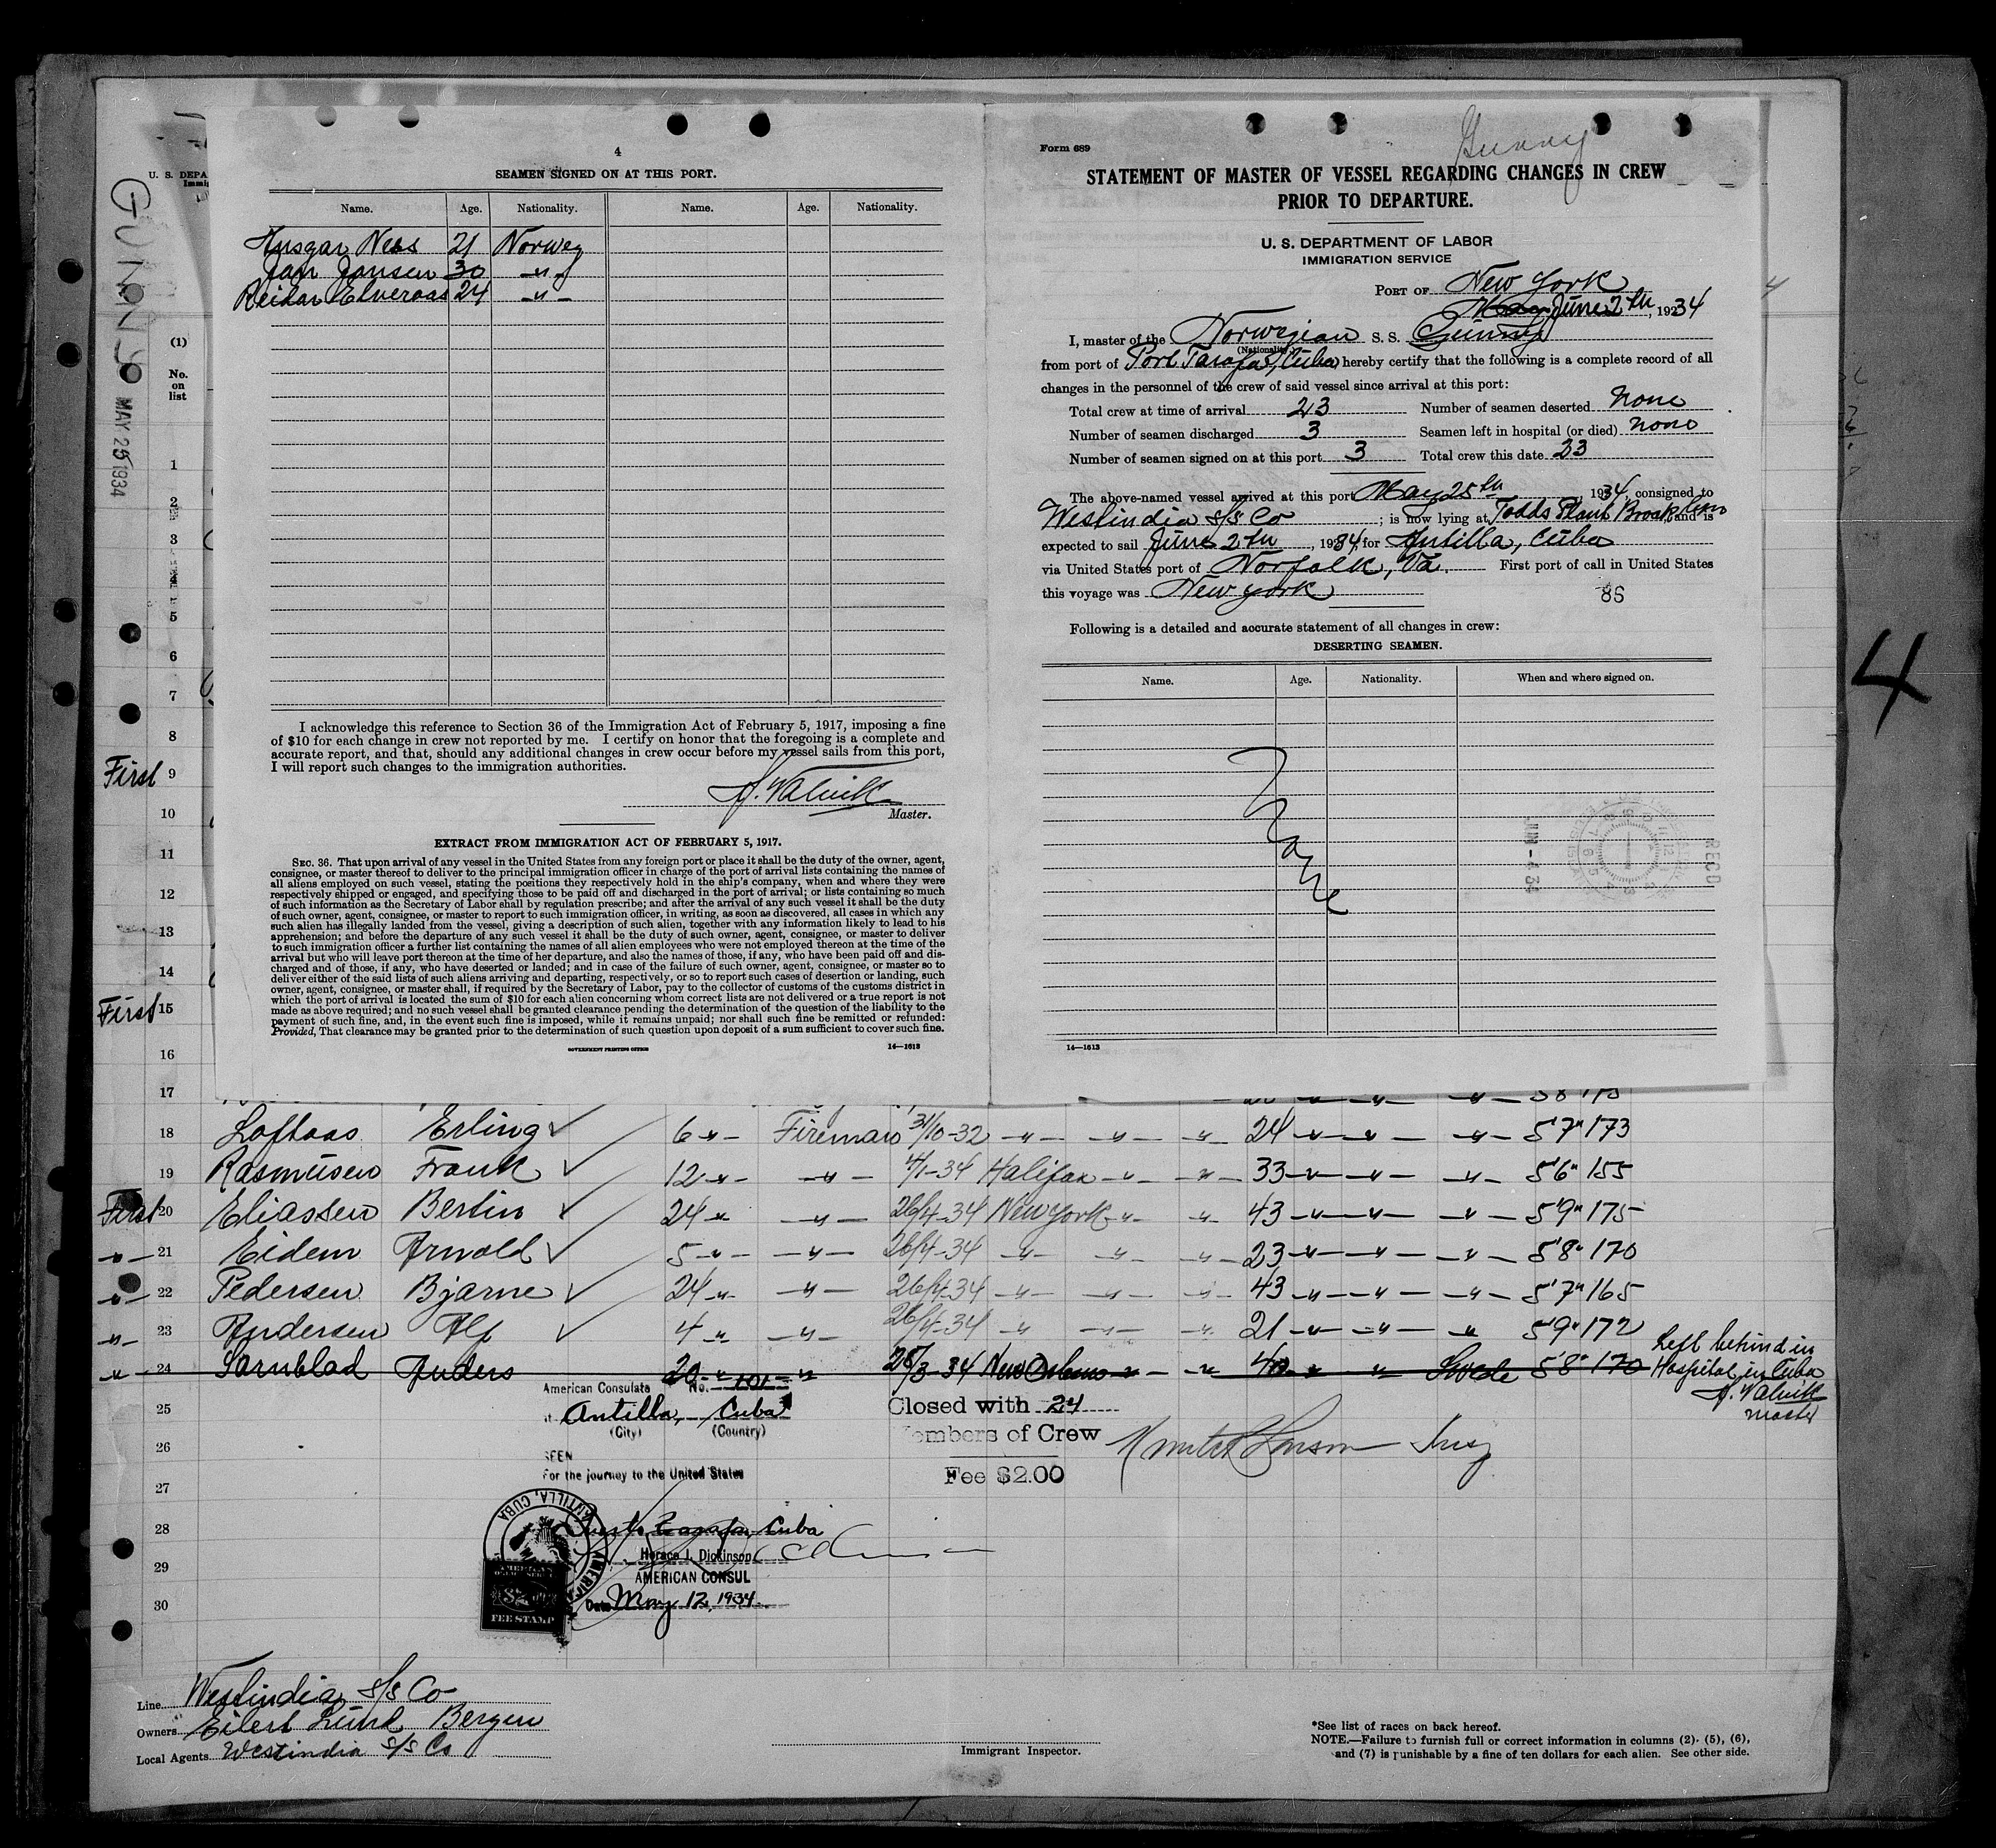 4
SEAMEN SIGNED ON AT THIS PORT.
Name. Age. Nationality. Name. Age. Nationality.
Ansgar Ness 21 Norweg
Jan Jansen 30 -"-
Reidar Elveraas 24 -"-
I acknowledge this reference to Section 36 of the Immigration Act of February 5, 1917, imposing a fine
of $10 for each change in crew not reported by me. I certify on honor that the foregoing is a complete and
accurate report, and that, should any additional changes in crew occur before my vessel sails from this port,
I will report such changes to the immigration authorities.
A. Valvik
Master.
EXTRACT FROM IMMIGRATION ACT OF FEBRUARY 5, 1917.
SEC. 36. That upon arrival of any vessel in the United States from any foreign port or place it shall be the duty of the owner, agent,
consignee, or master thereof to deliver to the principal immigration officer in charge of the port of arrival lists containing the names of
all aliens employed on such vessel, stating the positions they respectively hold in the ship's company, when and where they were
respectively shipped or engaged, and specifying those to be paid off and discharged in the port of arrival; or lists containing so much
of such information as the Secretary of Labor shall by regulation prescribe; and after the arrival of any such vessel it shall be the duty
of such owner, agent, consignee, or master to report to such immigration officer, in writing, as soon as discovered, all cases in which any
such alien has illegally landed from the vessel, giving a description of such alien, together with any information likely to lead to his
apprehension; and before the departure of any such vessel it shall be the duty of such owner, agent, consignee, or master to deliver
to such immigration officer a further list containing the names of all alien employees who were not employed thereon at the time of the
arrival but who will leave port thereon at the time of her departure, and also the names of those, if any, who have been paid off and dis-
charged and of those, if any, who have deserted or landed; and in case of the failure of such owner, agent, consignee, or master so to
deliver either of the said lists of such aliens arriving and departing, respectively, or so to report such cases of desertion or landing, such
owner, agent, consignee, or master shall, if required by the Secretary of Labor, pay to the collector of customs of the customs district in
which the port of arrival is located the sum of $10 for each alien concerning whom correct lists are not delivered or a true report is not
made as above required; and no such vessel shall be granted clearance pending the determination of the question of the liability to the
payment of such fine, and, in the event such fine is imposed, while it remains unpaid; nor shall such fine be remitted or refunded:
Provided, That clearance may be granted prior to the determination of such question upon deposit of a sum sufficient to cover such fine.
GOVERNMENT PRINTING OFFICE 14—1613
Gunny
Form 689
STATEMENT OF MASTER OF VESSEL REGARDING CHANGES IN CREW
PRIOR TO DEPARTURE.
U. S. DEPARTMENT OF LABOR
IMMIGRATION SERVICE
PORT OF New York
May June 2th, 1934
I, master of the Norwegian S. S. Gunny
(Nationality)
from port of Port Tarafa, Cuba, hereby certify that the following is a complete record of all
changes in the personnel of the crew of said vessel since arrival at this port:
Total crew at time of arrival 23 Number of seamen deserted none
Number of seamen discharged 3 Seamen left in hospital (or died) none
Number of seamen signed on at this port 3 Total crew this date 23
The above-named vessel arrived at this port May 25th, 1934, consigned to
Westindia s/s Co; is now lying at Todds Plant Brooklyn, and is
expected to sail June 2th, 1934, for Antilla, Cuba
via United States port of Norfolk, Va. First port of call in United States
this voyage was New York
86
Following is a detailed and accurate statement of all changes in crew:
DESERTING SEAMEN.
Name. Age. Nationality. When and where signed on.
None
JUN -4 34
RECD
14—1613
4
U. S. DEPA
Immig
GUNNY
MAY 25 1934
(1)
No.
on
list
1
2
3
4
5
6
7
8
First 9
10
11
12
13
14
First 15
16
17
18 Loftaas Erling 6 -"- Fireman 31/10-32 -"- -"- -"- 24 -"- -"- -"- 5'7" 173
19 Rasmusen Frank 12 -"- -"- 4/1-34 Halifax -"- -"- 33 -"- -"- -"- 5'6" 155
First 20 Eliassen Bertin 24 -"- -"- 26/4-34 New York -"- -"- 43 -"- -"- -"- 5'9" 175
-"- 21 Eidem Arnold 5 -"- -"- 26/4-34 -"- -"- -"- 23 -"- -"- -"- 5'8" 170
-"- 22 Pedersen Bjarne 24 -"- -"- 26/4-34 -"- -"- -"- 43 -"- -"- -"- 5'7" 165
-"- 23 Andersen Alf 4 -"- -"- 26/4-34 -"- -"- -"- 21 -"- -"- -"- 5'9" 172
-"- 24 Sarnblad Anders 20 -"- -"- 25/3-34 New Orleans -"- -"- 40 " " Swede 5'8" 170
Left behind in
Hospital in Cuba
A. Valvik
master
25
26
27
28
29
30
American Consulate No. 101
Antilla, Cuba
(City) (Country)
SEEN
For the journey to the United States
Puerto Tarafa, Cuba
Horace J. Dickinson
AMERICAN CONSUL
Date May 12, 1934
ANTILLA, CUBA
AMERICAN
FEE STAMP
Closed with 24
Members of Crew
Fee $2.00
Line Westindia s/s Co
Owners Eilert Lund Bergen
Local Agents Westindia s/s Co
Immigrant Inspector.
*See list of races on back hereof.
NOTE.—Failure to furnish full or correct information in columns (2), (5), (6),
and (7) is punishable by a fine of ten dollars for each alien. See other side.